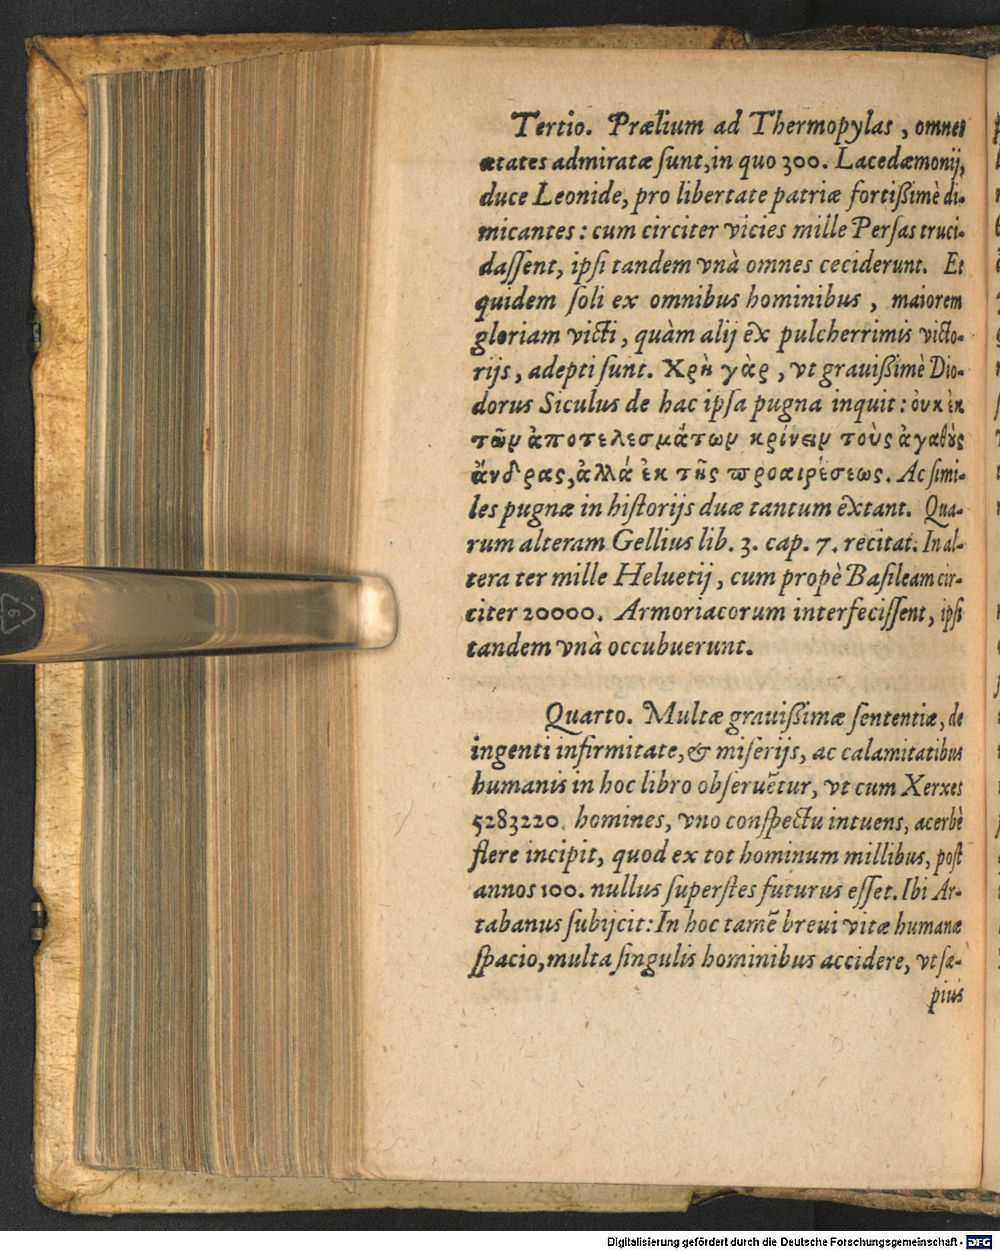 Tertio. Prælium ad Thermopylas, omnes
ætates admiratæ ſunt, in quo 300. Lacedæmonij,
duce Leonide, pro libertate patriæ fortißimè di-
micantes: cum circiter vicies mille Perſas truci-
daſſent, ipſi tandem vnà omnes ceciderunt. Et
quidem ſoli ex omnibus hominibus, maiorem
gloriam victi, quàm alij ex pulcherrimis victo-
rijs, adepti ſunt. Χρὴ γὰρ, vt grauißimè Dio-
dorus Siculus de hac ipſa pugna inquit: ὀυκ ἐκ
τῶν ἀποτελεσμάτων κρίνειν τοὺς ἀγαθοὺς
ἄνδρας, ἀλλά ἐκ τῆς προαιρέσεως. Ac ſimi-
les pugnæ in hiſtorijs duæ tantum extant. Qua-
rum alteram Gellius lib. 3. cap. 7. recitat. In al-
tera ter mille Heluetij, cum propè Baſileam cir-
citer 20000. Armoriacorum interfeciſſent, ipſi
tandem vnà occubuerunt.
Quarto. Multæ grauißimæ ſententiæ, de
ingenti infirmitate, & miſerijs, ac calamitatibus
humanis in hoc libro obſeruẽtur, vt cum Xerxes
5283220. homines, vno conſpectu intuens, acerbè
flere incipit, quod ex tot hominum millibus, poſt
annos 100. nullus ſuperſtes futurus eſſet. Ibi Ar-
tabanus ſubijcit: In hoc tamẽ breui vitæ humanæ
ſpacio, multa ſingulis hominibus accidere, vt ſæ-
pius
Digitalisierung gefördert durch die Deutsche Forschungsgemeinschaft - DFG